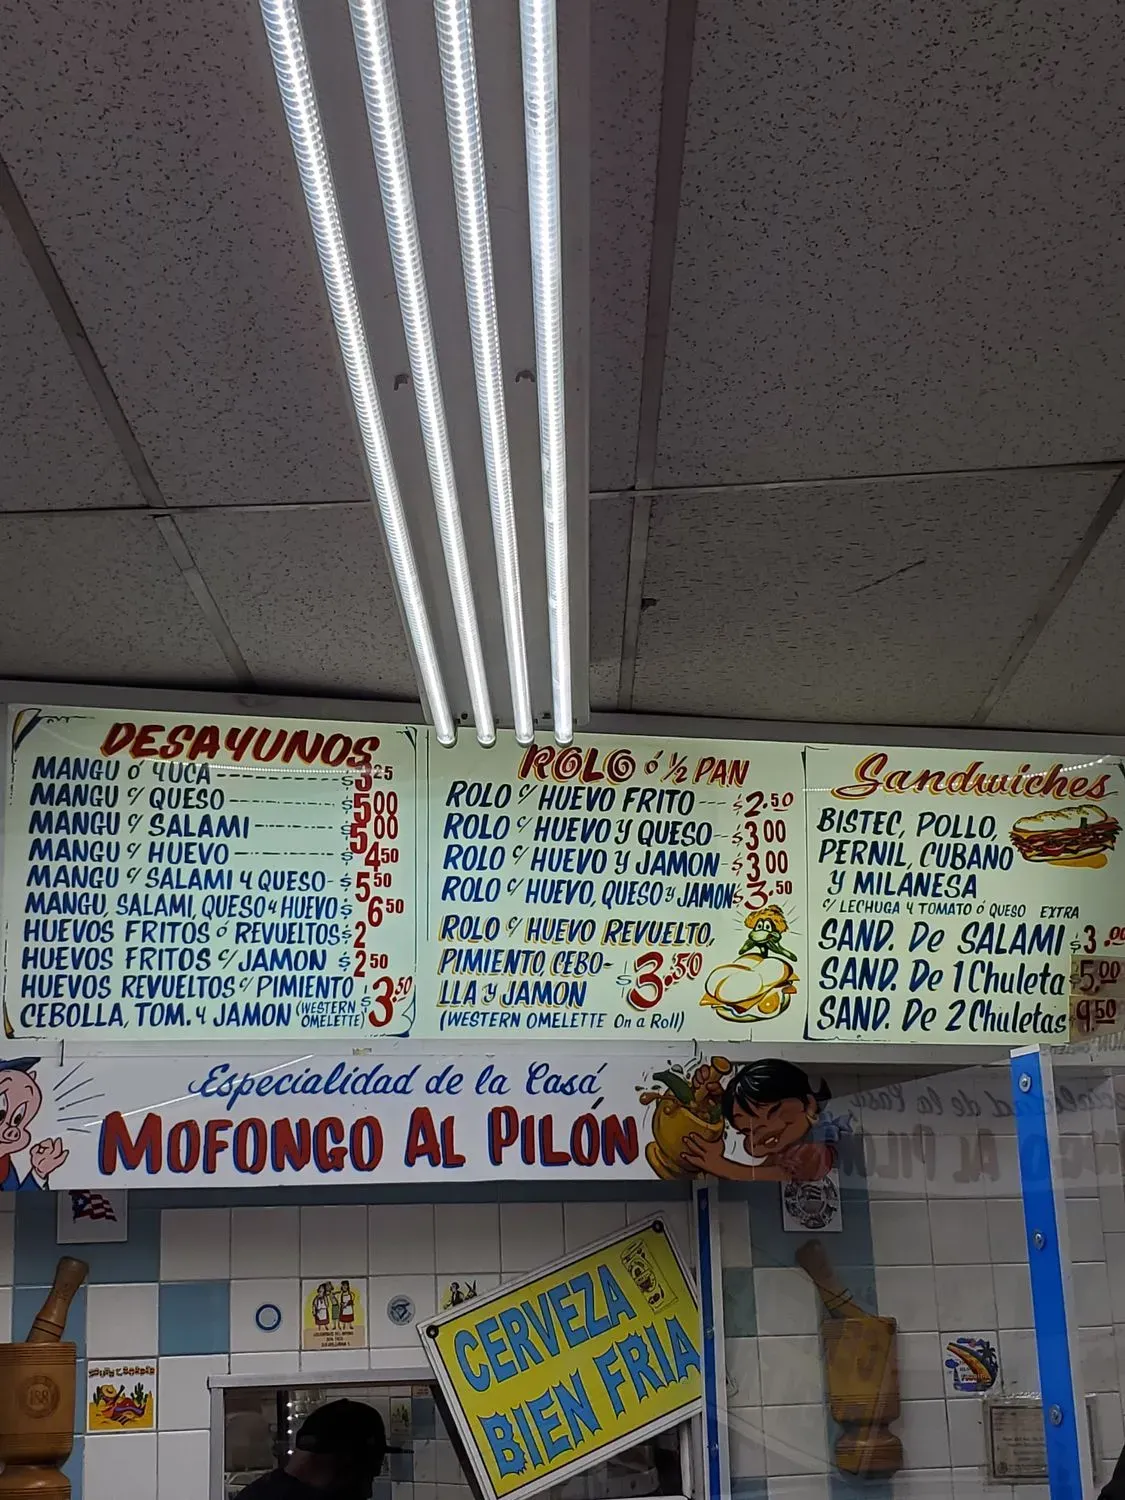 DESAYUNOS
MANGU ó YUCA $3.25
MANGU c/ QUESO 5.00
MANGU c/ SALAMI 5.00
MANGU c/ HUEVO $4.50
MANGU c/ SALAMI y QUESO $5.50
MANGU, SALAMI, QUESO y HUEVO $6.50
HUEVOS FRITOS ó REVUELTOS $2
HUEVOS FRITOS c/ JAMON $2.50
HUEVOS REVUELTOS c/ PIMIENTO
CEBOLLA, TOM. y JAMON (WESTERN OMELETTE) $3.50
ROLO ó ½ PAN
ROLO c/ HUEVO FRITO $2.50
ROLO c/ HUEVO Y QUESO $3.00
ROLO c/ HUEVO Y JAMON $3.00
ROLO c/ HUEVO, QUESO y JAMON $3.50
ROLO c/ HUEVO REVUELTO,
PIMIENTO, CEBO-
LLA y JAMON $3.50
(WESTERN OMELETTE On a Roll)
Sandwiches
BISTEC, POLLO,
PERNIL, CUBANO
Y MILANESA
c/ LECHUGA y TOMATO ó QUESO EXTRA
SAND. De SALAMI $3.00
SAND. De 1 Chuleta 5.00
SAND. De 2 Chuletas 9.50
Especialidad de la Casa
MOFONGO AL PILÓN
CERVEZA
BIEN FRIA